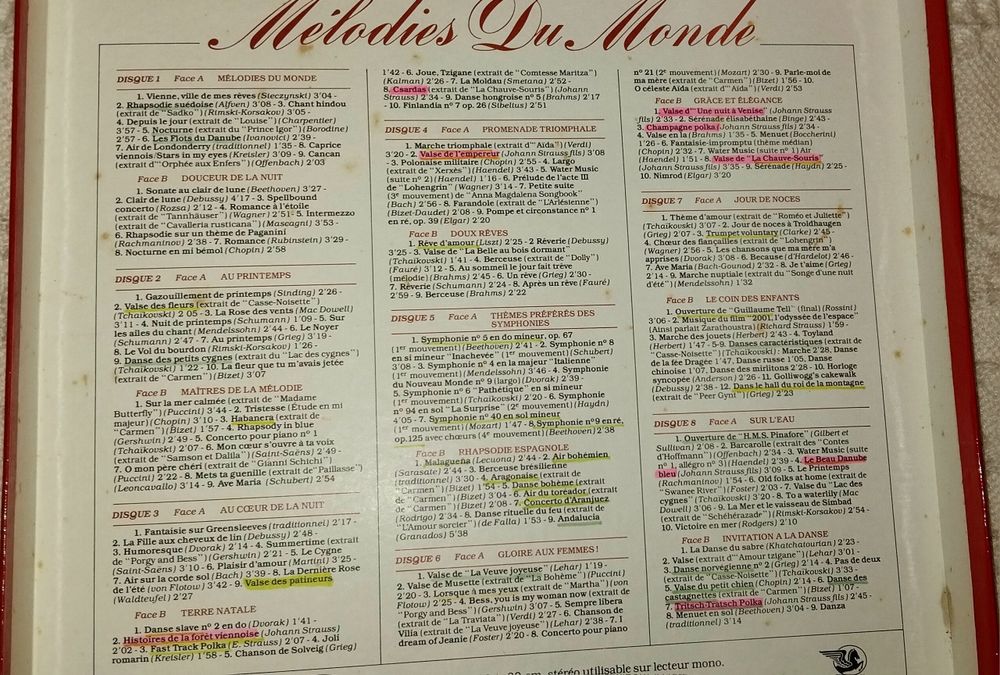 Mélodies Du Monde
DISQUE 1 Face A MÉLODIES DU MONDE
1. Vienne, ville de mes rêves (Sieczynski) 3'04 -
2. Rhapsodie suédoise (Alfven) 3'08 - 3. Chant hindou
(extrait de "Sadko") (Rimski-Korsakov) 3'05 -
4. Depuis le jour (extrait de "Louise") (Charpentier)
3'57 - 5. Nocturne (extrait du "Prince Igor") (Borodine)
2'57 - 6. Les Flots du Danube (Ivanovici) 2'39 -
7. Air de Londonderry (traditionnel) 1'35 - 8. Caprice
viennois/Stars in my eyes (Kreisler) 3'09 - 9. Cancan
(extrait d'"Orphée aux Enfers") (Offenbach) 2'03
Face B DOUCEUR DE LA NUIT
1. Sonate au clair de lune (Beethoven) 3'27 -
2. Clair de lune (Debussy) 4'17 - 3. Spellbound
concerto (Rozsa) 2'12 - 4. Romance à l'étoile
(extrait de "Tannhäuser") (Wagner) 2'51 - 5. Intermezzo
(extrait de "Cavalleria rusticana") (Mascagni) 3'53 -
6. Rhapsodie sur un thème de Paganini
(Rachmaninov) 2'38 - 7. Romance (Rubinstein) 3'29 -
8. Nocturne en mi bémol (Chopin) 2'58
DISQUE 2 Face A AU PRINTEMPS
1. Gazouillement de printemps (Sinding) 2'26 -
2. Valse des fleurs (extrait de "Casse-Noisette")
(Tchaïkovski) 2'05 - 3. La Rose des vents (Mac Dowell)
1'04 - 4. Nuit de printemps (Schumann) 1'09 - 5. Sur
les ailes du chant (Mendelssohn) 2'44 - 6. Le Noyer
(Schumann) 2'47 - 7. Au printemps (Grieg) 3'19 -
8. Le Vol du bourdon (Rimski-Korsakov) 1'26 -
9. Danse des petits cygnes (extrait du "Lac des cygnes")
(Tchaïkovski) 1'22 - 10. La fleur que tu m'avais jetée
(extrait de "Carmen") (Bizet) 3'07
Face B MAÎTRES DE LA MÉLODIE
1. Sur la mer calmée (extrait de "Madame
Butterfly") (Puccini) 3'44 - 2. Tristesse (Étude en mi
majeur) (Chopin) 3'10 - 3. Habanera (extrait de
"Carmen") (Bizet) 1'57 - 4. Rhapsody in blue
(Gershwin) 2'49 - 5. Concerto pour piano n° 1
(Tchaïkovski) 2'07 - 6. Mon cœur s'ouvre à ta voix
(extrait de "Samson et Dalila") (Saint-Saëns) 2'49 -
7. O mon père chéri (extrait de "Gianni Schichi")
(Puccini) 2'22 - 8. Mets ta guenille (extrait de "Paillasse")
(Leoncavallo) 3'14 - 9. Ave Maria (Schubert) 2'54
DISQUE 3 Face A AU CŒUR DE LA NUIT
1. Fantaisie sur Greensleeves (traditionnel) 2'17 -
2. La Fille aux cheveux de lin (Debussy) 2'48 -
3. Humoresque (Dvorak) 2'14 - 4. Summertime (extrait
de "Porgy and Bess") (Gershwin) 2'21 - 5. Le Cygne
(Saint-Saëns) 3'10 - 6. Plaisir d'amour (Martini) 3'25
7. Air sur la corde sol (Bach) 3'39 - 8. La Dernière Rose
de l'été (von Flotow) 3'42 - 9. Valse des patineurs
(Waldteufel) 2'27
Face B TERRE NATALE
1. Danse slave n° 2 en do (Dvorak) 1'41 -
2. Histoires de la forêt viennoise (Johann Strauss)
2'02 - 3. Fast Track Polka (E. Strauss) 2'07 - 4. Joli
romarin (Kreisler) 1'58 - 5. Chanson de Solveig (Grieg)
1'42 - 6. Joue, Tzigane (extrait de "Comtesse Maritza")
(Kalman) 2'26 - 7. La Moldau (Smetana) 2'52 -
8. Csardas (extrait de "La Chauve-Souris") (Johann
Strauss) 2'34 - 9. Danse hongroise n° 5 (Brahms) 2'17
- 10. Finlandia n° 7 op. 26 (Sibelius) 2'51
DISQUE 4 Face A PROMENADE TRIOMPHALE
1. Marche triomphale (extrait d'"Aïda") (Verdi)
3'20 - 2. Valse de l'empereur (Johann Strauss fils) 3'08
- 3. Polonaise militaire (Chopin) 2'55 - 4. Largo
(extrait de "Xerxès") (Haendel) 3'43 - 5. Water Music
(suite n° 2) (Haendel) 1'16 - 6. Prélude de l'acte III
de "Lohengrin" (Wagner) 3'14 - 7. Petite suite
(3e mouvement) (de "Anna Magdalena Songbook"
(Bach) 2'56 - 8. Farandole (extrait de "L'Arlésienne")
(Bizet-Daudet) 2'08 - 9. Pompe et circonstance n° 1
en ré, op. 39 (Elgar) 2'20
Face B DOUX RÊVES
1. Rêve d'amour (Liszt) 2'25 - 2. Rêverie (Debussy)
3'25 - 3. Valse de "La Belle au bois dormant"
(Tchaïkovski) 1'41 - 4. Berceuse (extrait de "Dolly")
(Fauré) 3'12 - 5. Au sommeil le jour fait trêve
(mélodie) (Brahms) 2'45 - 6. Un rêve (Grieg) 2'30 -
7. Rêverie (Schumann) 2'24 - 8. Après un rêve (Fauré)
2'59 - 9. Berceuse (Brahms) 2'22
DISQUE 5 Face A THÈMES PRÉFÉRÉS DES
SYMPHONIES
1. Symphonie n° 5 en do mineur, op. 67
(1er mouvement) (Beethoven) 2'41 - 2. Symphonie n° 8
en si mineur "Inachevée" (1er mouvement) (Schubert)
3'08 - 3. Symphonie n° 4 en la majeur "Italienne"
(1er mouvement) (Mendelssohn) 3'46 - 4. Symphonie
du Nouveau Monde n° 9 (largo) (Dvorak) 2'39 -
5. Symphonie n° 6 "Pathétique" en si mineur
(1er mouvement) (Tchaïkovski) 2'20 - 6. Symphonie
n° 94 en sol "La Surprise" (2e mouvement) (Haydn)
4'05 - 7. Symphonie n° 40 en sol mineur
(1er mouvement) (Mozart) 1'47 - 8. Symphonie n° 9 en ré,
op. 125 avec chœurs (4e mouvement) (Beethoven) 2'38
Face B RHAPSODIE ESPAGNOLE
1. Malagueña (Lecuona) 2'44 - 2. Air bohémien
(Sarasate) 2'44 - 3. Berceuse brésilienne
(traditionnel) 3'30 - 4. Aragonaise (extrait de
"Carmen") (Bizet) 1'54 - 5. Danse bohème (extrait de
"Carmen") (Bizet) 3'04 - 6. Air du toréador (extrait
de "Carmen") (Bizet) 2'08 - 7. Concerto d'Aranjuez
(Rodrigo) 2'34 - 8. Danse rituelle du feu (extrait de
"L'Amour sorcier") (de Falla) 1'53 - 9. Andalucia
(Granados) 5'38
DISQUE 6 Face A GLOIRE AUX FEMMES !
1. Valse de "La Veuve joyeuse" (Lehar) 1'19 -
2. Valse de Musette (extrait de "La Bohème") (Puccini)
2'20 - 3. Lorsque à mes yeux (extrait de "Martha") (von
Flotow) 2'25 - 4. Bess, you is my woman now (extrait de
"Porgy and Bess") (Gershwin) 3'07 - 5. Sempre libera
(extrait de "La Traviata") (Verdi) 2'27 - 6. Chanson de
Vilia (extrait de "La Veuve joyeuse") (Lehar) 2'38 - 7. I
dream of Jeanie (Foster) 2'20 - 8. Concerto pour piano
n° 21 (2e mouvement) (Mozart) 2'30 - 9. Parle-moi de
ma mère (extrait de "Carmen") (Bizet) 1'56 - 10.
O céleste Aïda (extrait d'"Aïda") (Verdi) 2'53
Face B GRÂCE ET ÉLÉGANCE
1. Valse d'"Une nuit à Venise" (Johann Strauss
fils) 2'33 - 2. Sérénade élisabéthaine (Binge) 2'43 -
3. Champagne polka (Johann Strauss fils) 2'34 -
4. Valse en la (Brahms) 1'35 - 5. Menuet (Boccherini)
1'26 - 6. Fantaisie-impromptu (thème médian)
(Chopin) 2'32 - 7. Water Music (suite n° 1) Air
(Haendel) 1'51 - 8. Valse de "La Chauve-Souris"
(Johann Strauss fils) 3'35 - 9. Sérénade (Haydn) 2'25 -
10. Nimrod (Elgar) 3'20
DISQUE 7 Face A JOUR DE NOCES
1. Thème d'amour (extrait de "Roméo et Juliette")
(Tchaïkovski) 3'07 - 2. Jour de noces à Troldhaugen
(Grieg) 2'07 - 3. Trumpet voluntary (Clarke) 2'45 -
4. Chœur des fiançailles (extrait de "Lohengrin")
(Wagner) 2'56 - 5. Les chansons que ma mère m'a
apprises (Dvorak) 3'08 - 6. Because (d'Hardelot) 2'46 -
7. Ave Maria (Bach-Gounod) 2'32 - 8. Je t'aime (Grieg)
2'14 - 9. Marche nuptiale (extrait du "Songe d'une nuit
d'été") (Mendelssohn) 1'32
Face B LE COIN DES ENFANTS
1. Ouverture de "Guillaume Tell" (final) (Rossini)
3'06 - 2. Musique du film "2001, l'odyssée de l'espace"
(Ainsi parlait Zarathoustra) (Richard Strauss) 1'59 -
3. Marche des jouets (Herbert) 2'43 - 4. Toyland
(Herbert) 1'47 - 5-9. Danses caractéristiques (extrait de
"Casse-Noisette") (Tchaïkovski) : Marche 2'28, Danse
de la fée Dragée 1'47, Danse russe 1'05, Danse
chinoise 1'07, Danse des mirlitons 2'28 - 10. Horloge
syncopée (Anderson) 2'26 - 11. Golliwogg's cakewalk
(Debussy) 2'38 - 12. Dans le hall du roi de la montagne
(extrait de "Peer Gynt") (Grieg) 2'23
DISQUE 8 Face A SUR L'EAU
1. Ouverture de "H.M.S. Pinafore" (Gilbert et
Sullivan) 2'08 - 2. Barcarolle (extrait des "Contes
d'Hoffmann") (Offenbach) 2'34 - 3. Water Music (suite
n° 1, allégro n° 3) (Haendel) 2'39 - 4. Le Beau Danube
bleu (Johann Strauss fils) 3'09 - 5. Le Printemps
(Rachmaninov) 1'54 - 6. Old folks at home (extrait de
"Swanee River") (Foster) 2'03 - 7. Valse du "Lac des
cygnes" (Tchaïkovski) 3'20 - 8. To a waterlily (Mac
Dowell) 3'06 - 9. La Mer et le vaisseau de Simbad
(extrait de "Schéhérazade") (Rimski-Korsakov) 2'54 -
10. Victoire en mer (Rodgers) 2'10
Face B INVITATION A LA DANSE
1. La Danse du sabre (Khatchatourian) 2'23 -
2. Valse (extrait d'"Amour tzigane") (Lehar) 3'01 -
3. Danse norvégienne n° 2 (Grieg) 2'14 - 4. Pas de deux
(extrait de "Casse-Noisette") (Tchaïkovski) 3'33 -
5. Valse du petit chien (Chopin) 2'14 - 6. Danse des
castagnettes (extrait de "Carmen") (Bizet) 1'07 -
7. Tritsch-Tratsch Polka (Johann Strauss fils) 2'45 -
8. Menuet en sol (Beethoven) 3'04 - 9. Danza
(traditionnel) 3'14
30 cm, stéréo utilisable sur lecteur mono.